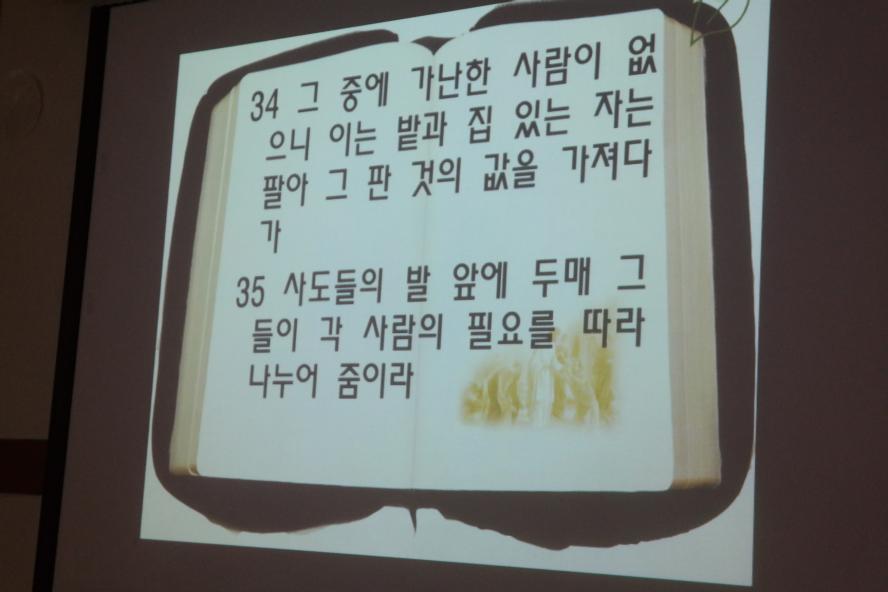 34 그 중에 가난한 사람이 없
으니 이는 밭과 집 있는 자는
팔아 그 판 것의 값을 가져다
가
35 사도들의 발 앞에 두매 그
들이 각 사람의 필요를 따라
나누어 줌이라